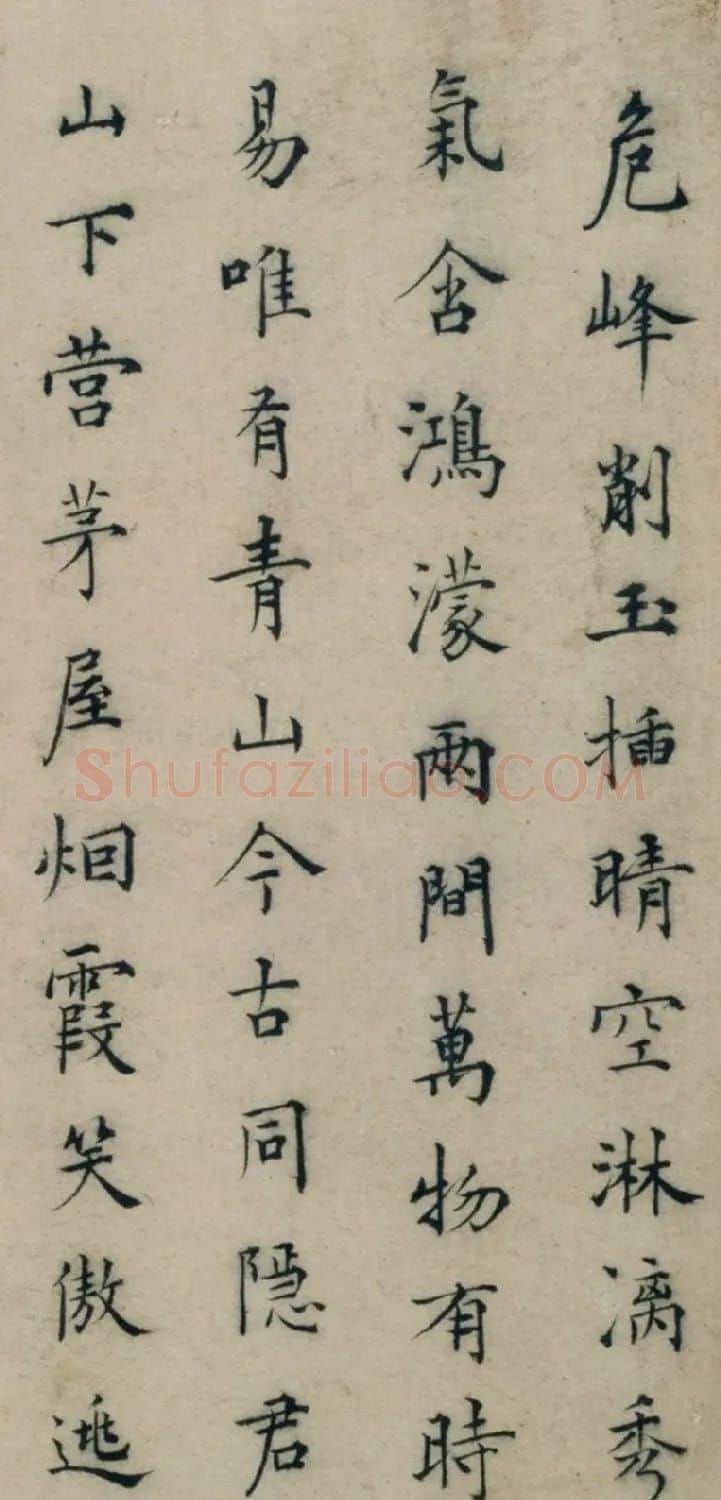 危峰削玉插晴空淋漓秀
氣含鴻濛兩間萬物有時
易唯有青山今古同隱君
山下营茅屋烟霞笑傲逃
Shufaziliao.COM